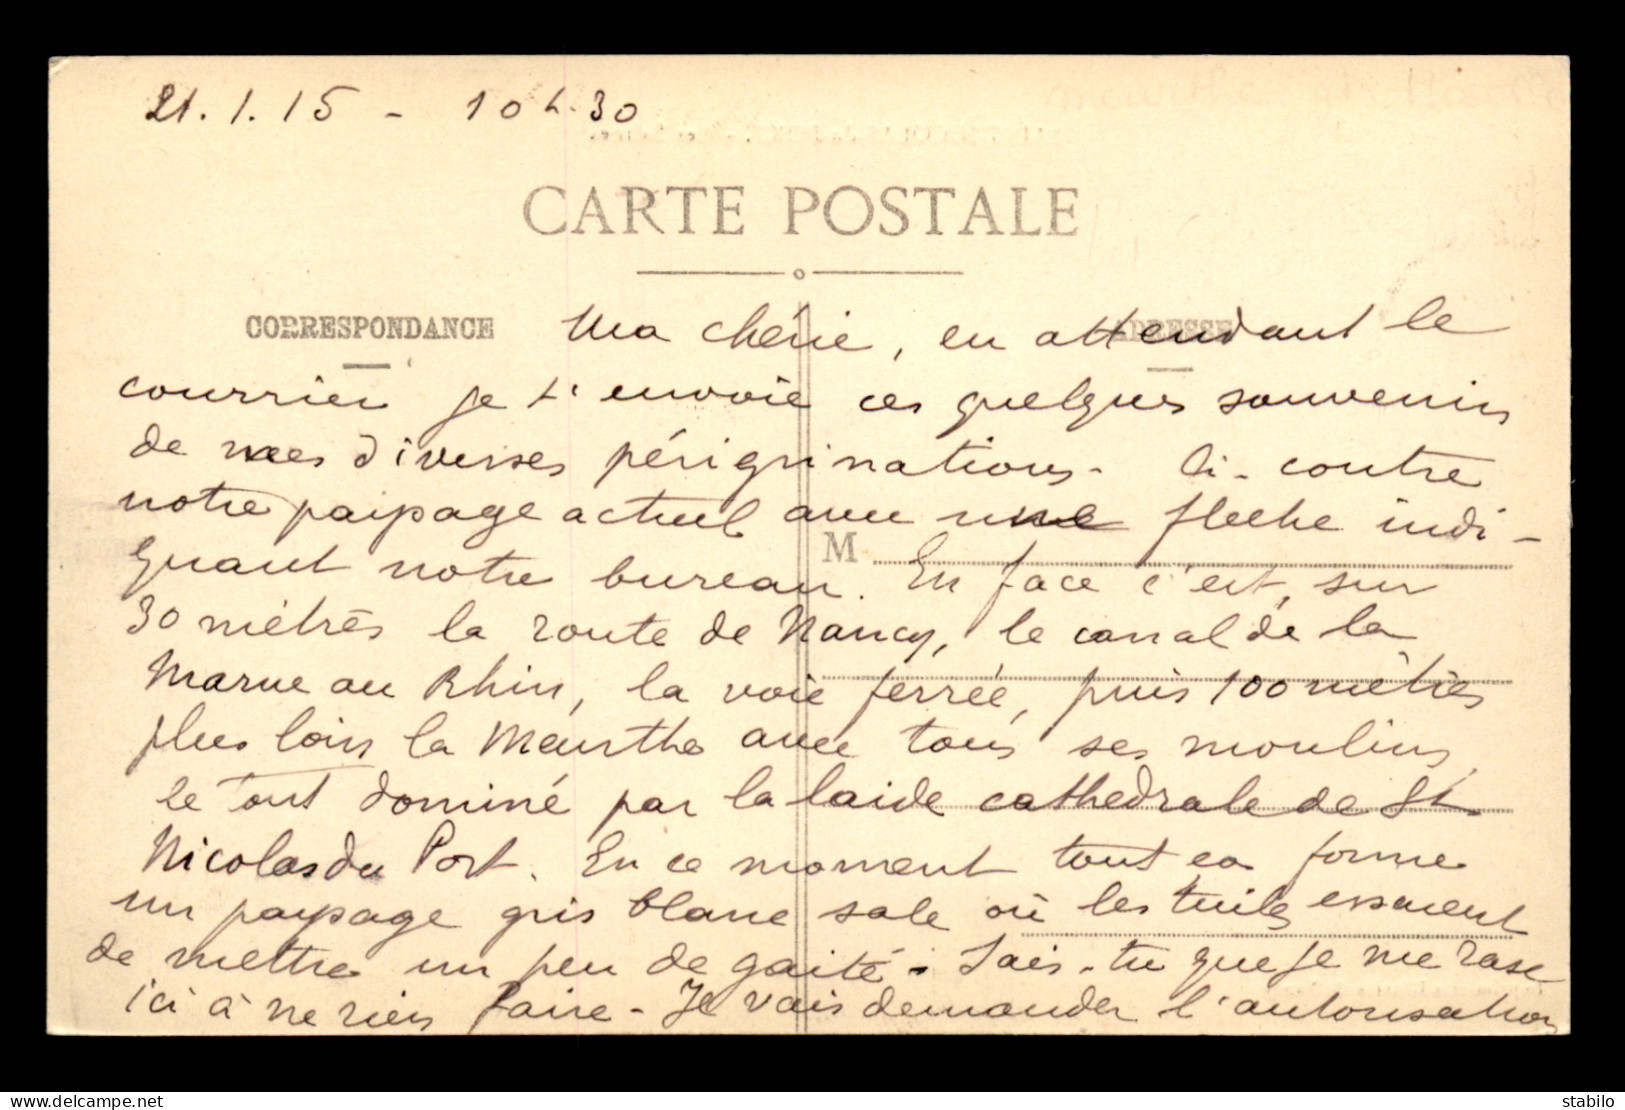 21.1.15 - 10 h. 30
CARTE POSTALE
CORRESPONDANCE
ADRESSE
Ma chérie, en attendant le
courrier je t'envoie ces quelques souvenirs
de mes diverses périgrinations. Ci-contre
notre paysage actuel avec une fleche indi-
quant notre bureau. En face c'est, sur
M
30 mètrès la route de Nancy, le canal de la
Marne au Rhin, la voie ferrée, puis 100 mètres
plus loin la Meurthe avec tous ses moulins,
le tout dominé par la laide cathedrale de St
Nicolas du Port. En ce moment tout ca forme
un paysage gris blanc sale où les tuiles essaient
de mettre un peu de gaité. Sais-tu que je me rase
ici à ne rien faire - Je vais demander l'autorisation
stabilo